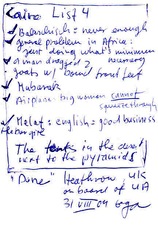 Cairo List 4
Balershisht = never enough
general problem in Africa:
"just doing what's minimum
a man dragged 2
goats w/ bound front feet
Mubarak
Airplane: big women cannot
squeeze through
Malet = english = good business
The tents in the desert
next to the pyramids
"Done" Heathrow, UK
on board of UA
31 VIII 04